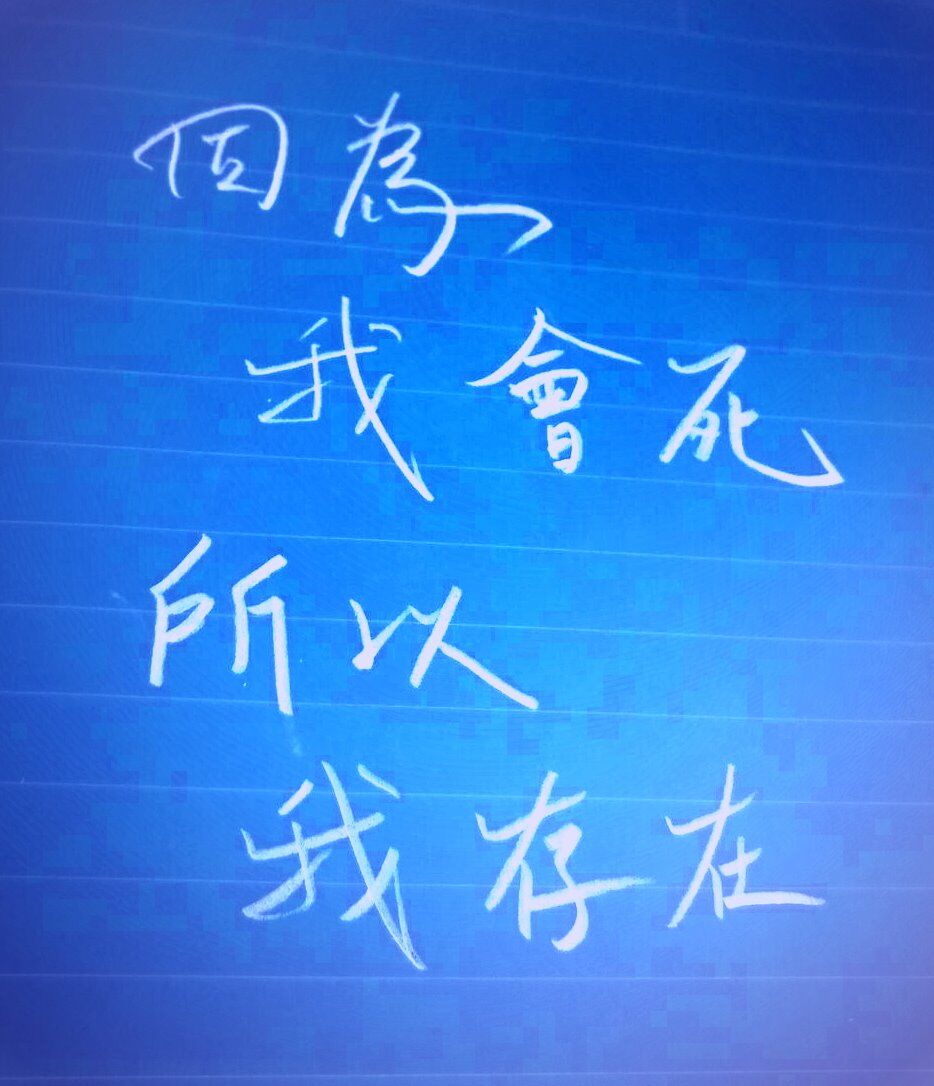 因為
我會死
所以
我存在